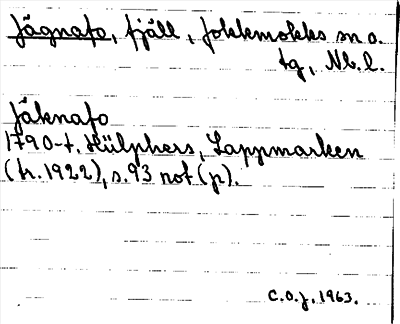 Jägnafo, fjäll, Jokkmokks sn o.
tg, Nb. l.
Jäknafo
1790-t. Hülphers, Lappmarken
(tr. 1922), s. 93 not (p).
C.O.J. 1963.